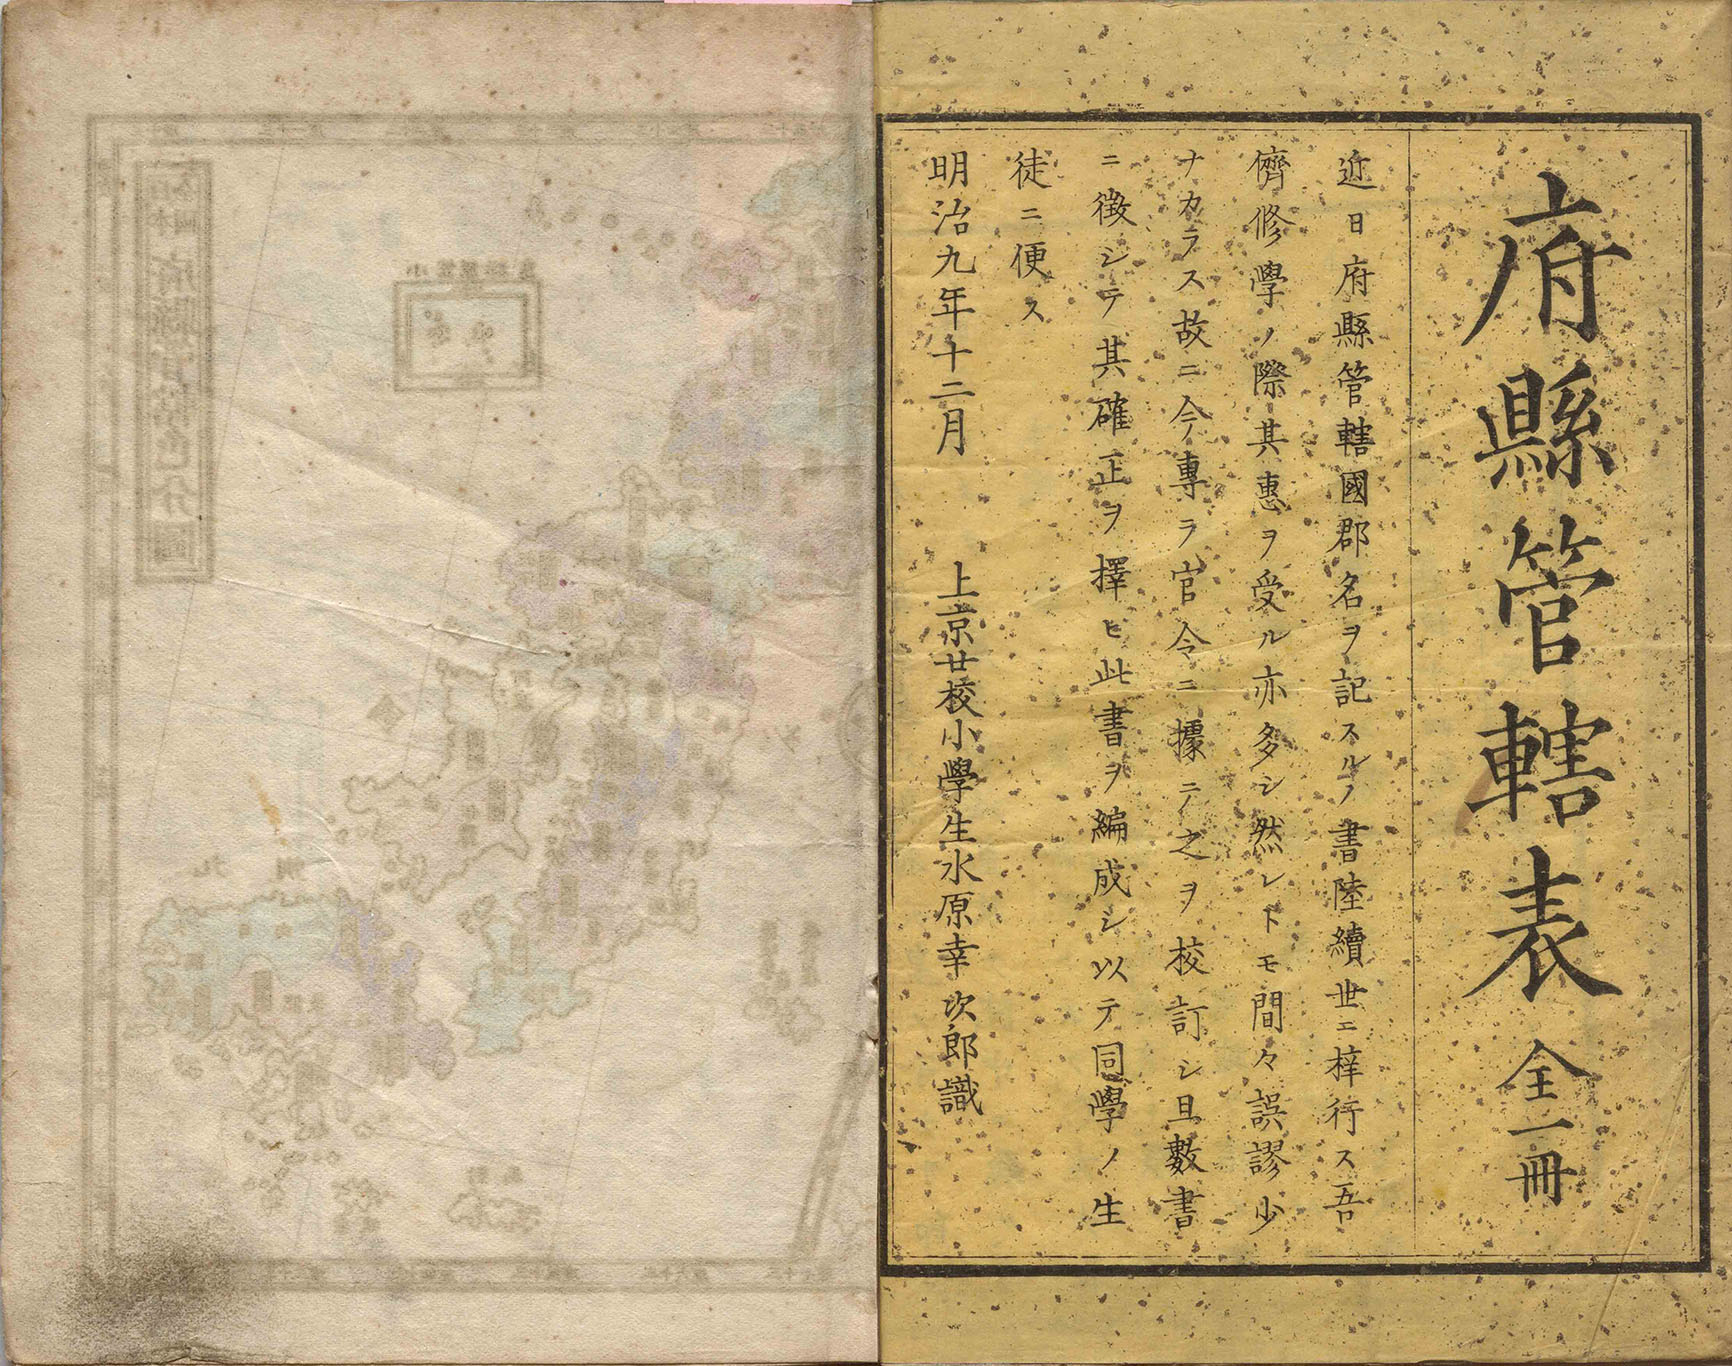 府縣管轄表 全一冊
近日府縣管轄國郡名ヲ記スルノ書陸續世ニ梓行ス吾
儕修學ノ際其惠ヲ受ル亦多シ然レトモ間々誤謬少
ナカラス故ニ今專ラ官令ニ據テ之ヲ校訂シ且數書
ニ徴シテ其確正ヲ擇ヒ此書ヲ編成シ以テ同學ノ生
徒ニ便ス
明治九年十二月 上京廿校小學生水原幸次郎識